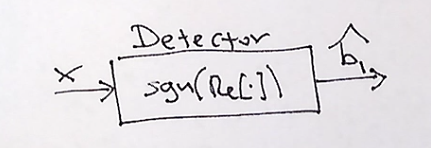 Detector
x
sgn(Re[·])
b̂₁